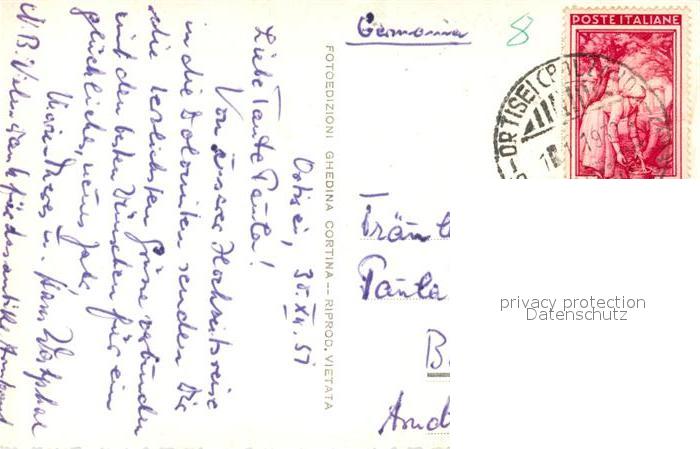 Ortisei, 30.XII.51
Liebe Tante Paula!
Von unserer Hochzeitsreise
in die Dolomiten senden Dir
die herzlichsten Grüsse verbunden
mit den besten Wünschen für ein
glückliches, neues Jahr
Hans Westphal
N.B. Vielen Dank für das antike Armband
FOTOEDIZIONI GHEDINA CORTINA -- RIPROD. VIETATA
Germania
8
POSTE ITALIANE
ORTISEI (BOLZANO)
Fräul
Paula
B
privacy protection
Datenschutz